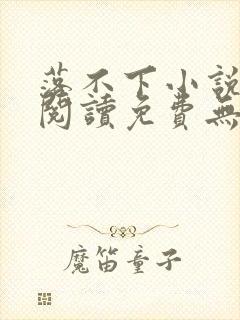 落不下小說
閱讀免費無
魔笛童子